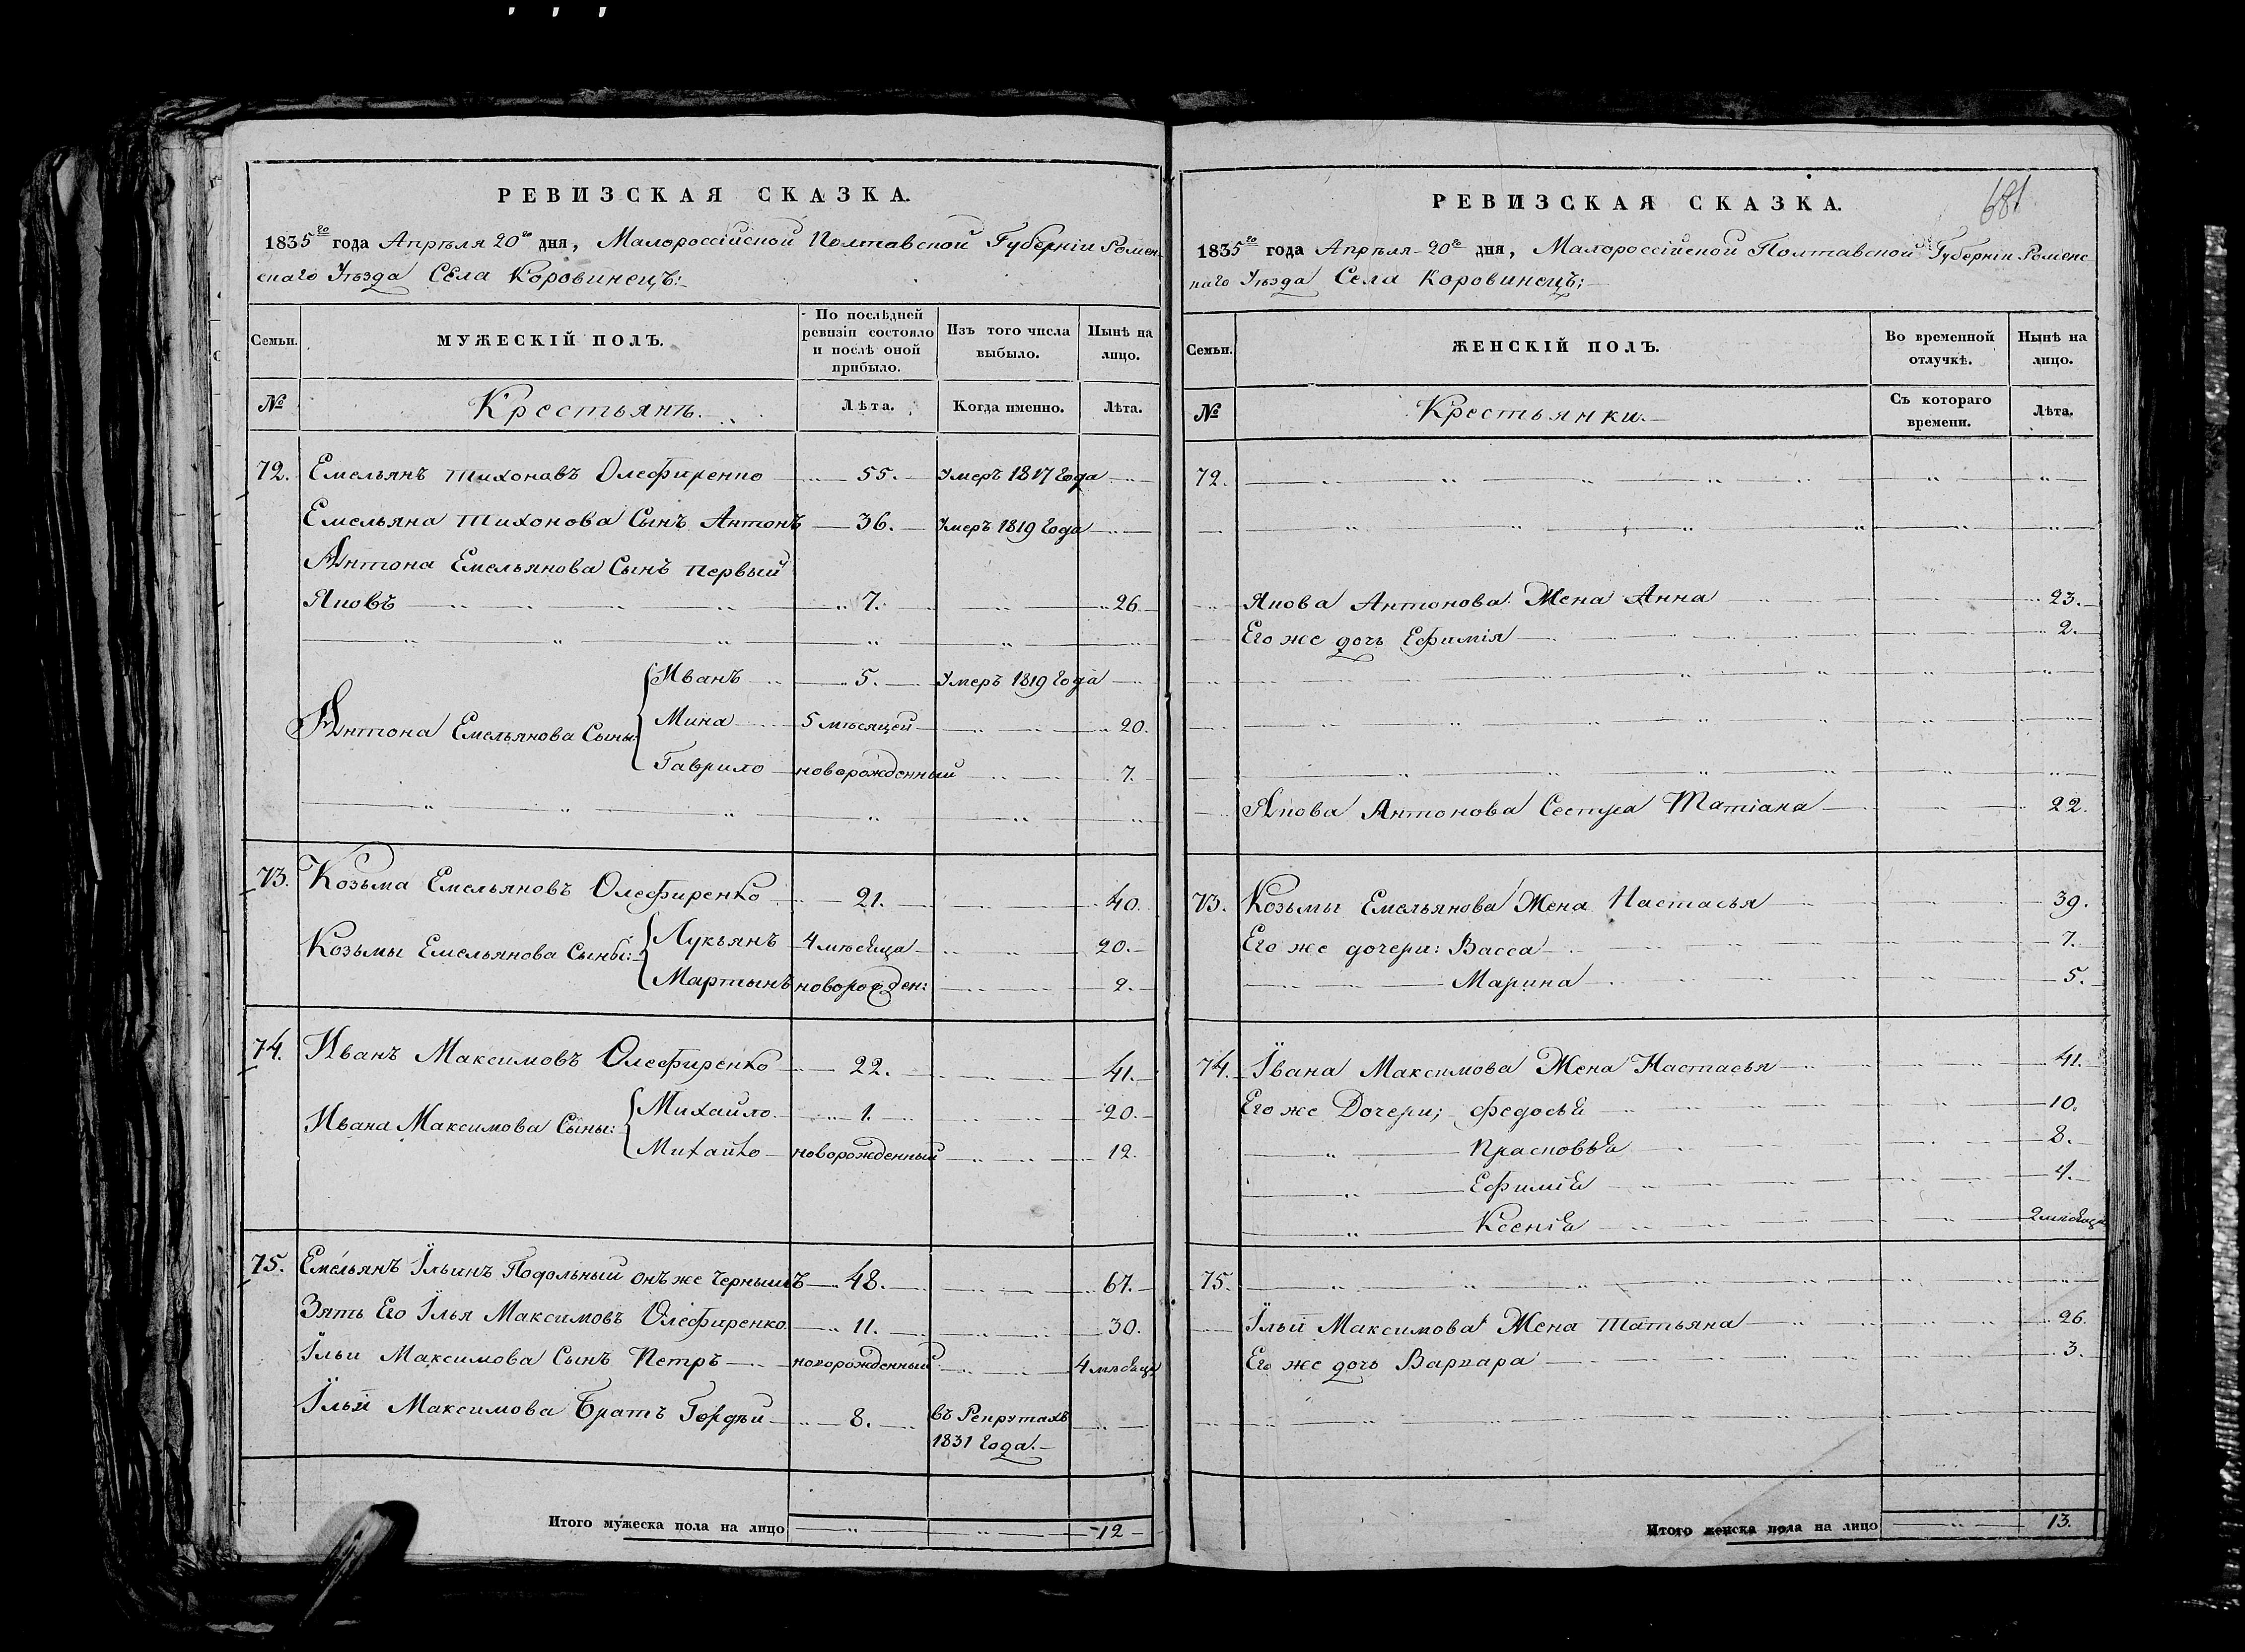 РЕВИЗСКАЯ СКАЗКА.
1835го года Апрѣля 20го дня, Малороссійской Полтавской Губерніи Ромен-
скаго Уѣзда Села Коровинецъ:
Семьи.
МУЖЕСКІЙ ПОЛЪ.
По послѣдней ревизіи состояло и послѣ оной прибыло.
Изъ того числа выбыло.
Нынѣ на лицо.
№
Крестьянѣ.
Лѣта.
Когда именно.
Лѣта.
72. Емельянъ Тихоновъ Олефиренко 55. Умеръ 1817 Года
Емельяна Тихонова Сынъ Антонъ 36. Умеръ 1819 Года
Антона Емельянова Сынъ первый
Яковъ 7. 26
Иванъ 5. Умеръ 1819 Года
Антона Емельянова Сыны: Мина 5 мѣсяцей 20.
Гаврило новорожденный 7.
73. Козьма Емельяновъ Олефиренко 21. 40.
Козьмы Емельянова Сыны: Лукьянъ 4 мѣсяца 20.
Мартынъ новорожден: 2.
74. Иванъ Максимовъ Олефиренко 22. 41.
Ивана Максимова Сыны: Михайло 1. 20.
Михайло новорожденный 12.
75. Емельянъ Ильинъ Подольный онъ же Чернышъ 48. 67.
Зять Его Илья Максимовъ Олефиренко 11. 30.
Ильи Максимова Сынъ Петръ новорожденный 4 мѣсяца
Ильи Максимова Братъ Гордѣй 8. въ Рекрутахъ
1831 Года.
Итого мужеска пола на лицо 12
681
РЕВИЗСКАЯ СКАЗКА.
1835го года Апрѣля 20го дня, Малороссійской Полтавской Губерніи Роменс
каго Уѣзда Села Коровинецъ:
Семьи.
ЖЕНСКІЙ ПОЛЪ.
Во временной отлучкѣ.
Нынѣ на лицо.
№
Крестьянки.
Съ котораго времени.
Лѣта.
72.
Якова Антонова Жена Анна 23.
Его же дочь Ефимія 2.
Якова Антонова Сестра Татіана 22.
73. Козьмы Емельянова Жена Настасья 39.
Его же дочери: Васса 7.
Марина 5.
74. Ивана Максимова Жена Настасья 41.
Его же Дочери; Федосья 10.
Прасковья 8.
Ефимія 4.
Ксенія 2 мѣсяца
75.
Ильи Максимова Жена Татьяна 26.
Его же дочь Варвара 3.
Итого женска пола на лицо 13.